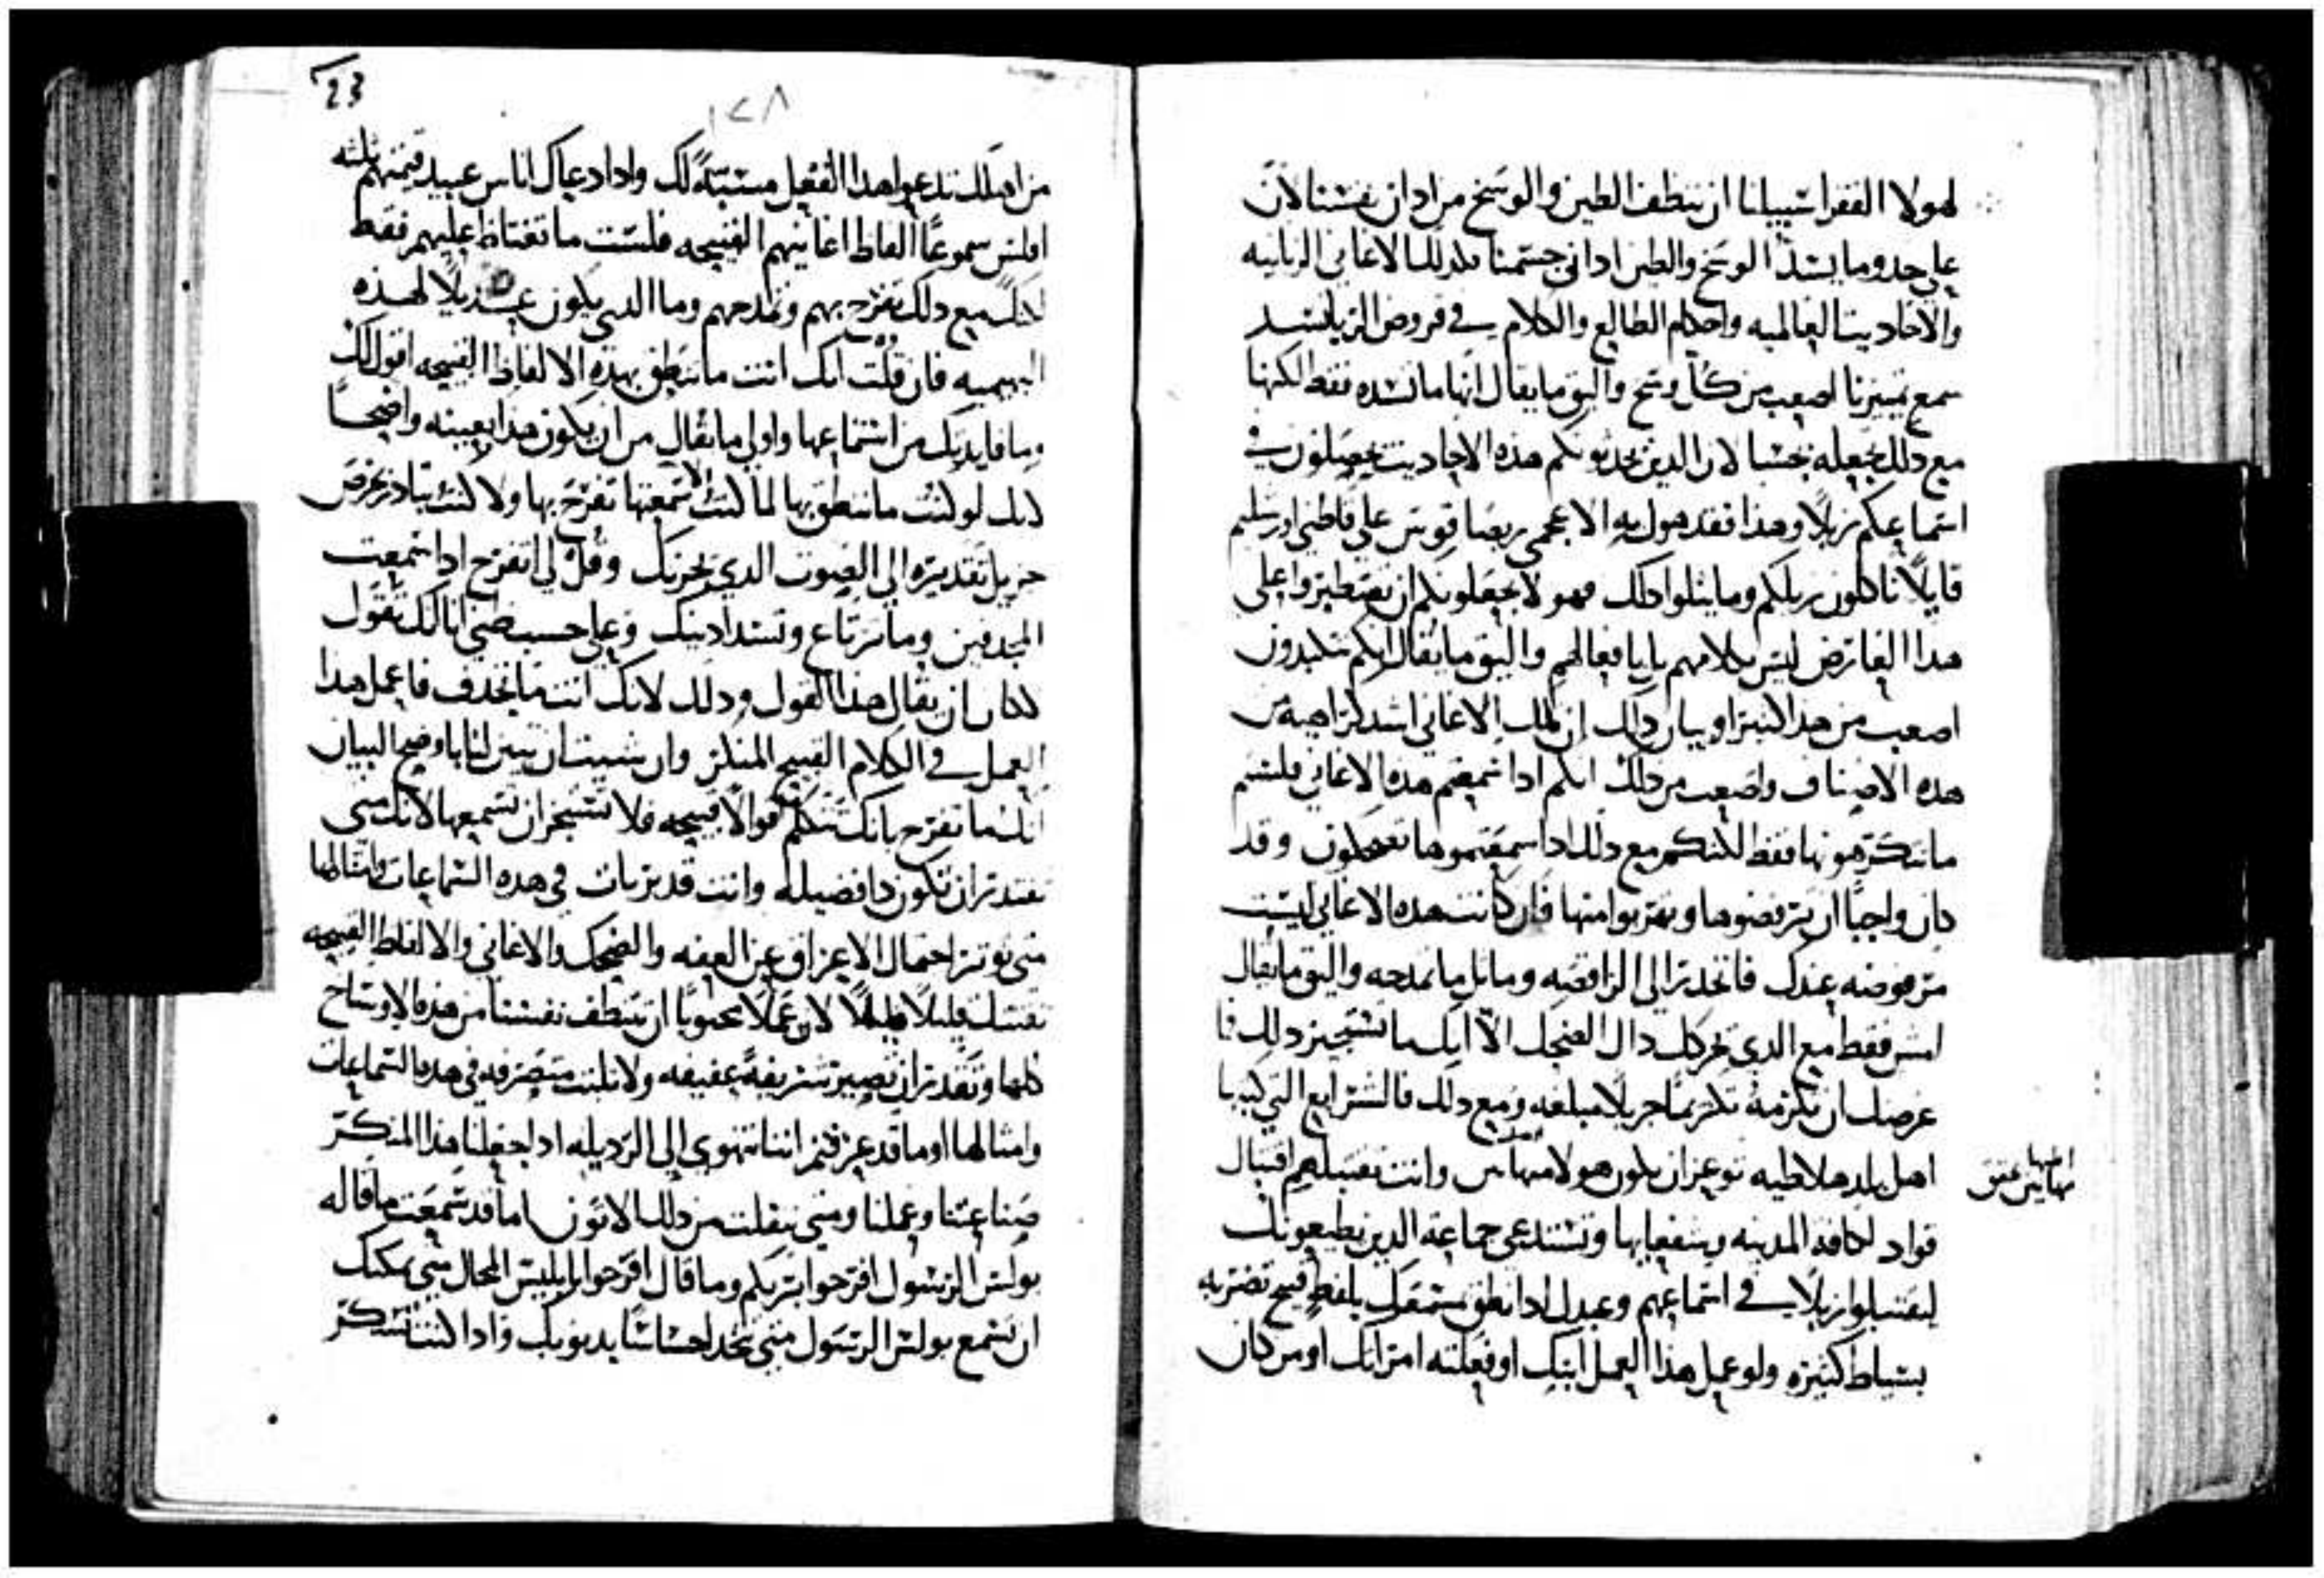 لهولا الفقرا سبيلنا ان ننظف الطين والوسخ من اذان نفسنا لان
على حدو ما يسد الوسخ والطين اذاني جسمنا كذلك الاغاني الزانيه
والاحاديث العالميه واحكام الطالع والكلام في قروض الربا تسد
سمع تمييزنا اصعب من كل وسخ واليق ما يقال انها ما تسده فقط لكنها
مع ذلك تجعله نجسًا لان الذين يحدثونكم هذه الاحاديث يجعلون في
استماعكم زبلاً وهذا فقد هول به الاعجمي ربصاقويس على قاطني اورشليم
قايلاً تاكلون زبلكم وما يتلوا ذلك فهولا يجعلونكم ان تصطبروا على
هذا العارض ليس بكلامهم بل بافعالهم واليق ما يقال انكم تكبدون
اصعب من هذا كثيرا وبيان ذلك ان تلك الاغاني اشد كراهية من
هذه الاصناف واصعب من ذلك انكم اذا سمعتم هذه الاغاني فلستم
ما تتكرهونها فقط لكنكم مع ذلك اذا سمعتموها تضحكون وقد
كان واجبًا ان ترفضوها وتهربوا منها فان كانت هذه الاغاني ليست
مرفوضه عندك فانحدر الى الراقصه وماثل ما تمدحه واليق ما يقال
امش فقط مع الذي يحركك ذال الضحك الا انك ما تستجيز ذلك فما
غرضك ان تكرمه تكريمًا جزيلاً مبلغه ومع ذلك فالشرايع التي كتبها
اهل بلد هلاطيه توعز ان يكون هولا مهانين وانت تقتبلهم اقتبال
قواد لكافة المدينه وشفعايها وتستدعي جماعة الذين يطيعونك
ليقتبلوا زبلاً في استماعهم وعبدك اذا نطق بسمعك بلفظ قبيح تضربه
بسياط كثيره ولو عمل هذا العمل ابنك او فعلته امراتك او من كان
23
١٢٨
من اهلك تدعوا هذا الفعل مسبّةً لك واذا دعاك اناس عبيد قيمتهم ثلثه
افلس سموعًا الفاظ اغانيهم القبيحه فلست ما تغتاظ عليهم فقط
لكنك مع ذلك تفرح بهم وتمدحهم وما الذي يكون عديلاً لهذه
البهيميه فان قلت انك انت ما تنطق بهذه الالفاظ القبيحه اقول لك
وما فايدتك من استماعها واولى ما يقال من ان يكون هذا بعينه واضحًا
لانك لو كنت ما تنطق بها لما كنت اذا سمعتها تفرح بها ولا كنت تبادر بحرص
جزيل تقديره الى الصوت الذي يخزيك وقل لي اتفرح اذا سمعت
المجدفين وما ترتاع وتسد اذنيك وعلى حسب ظني انا لك تقول
ان يقال هذا القول وذلك لانك انت ما تجدف فاعمل هذا
العمل في الكلام القبيح المنكر وان شيت ان تبين لنا باوضح البيان
انك ما تفرح بانك تتكلم اقوالاً قبيحه فلا تستجز ان تسمعها لانك متى
تقتدر ان تكون ذا فضيله وانت قد تربات في هذه السماعات وامثالها
متى توثر احتمال الاعراق عن العفه والضحك والاغاني والالفاظ القبيحه
نفسك قليلاً قليلاً لان عملاً محبوبًا ان تتنظف نفسنا من هذه الاوساخ
كلها وتقدر ان تصير شريفةً عفيفه ولا تلبث متصرفه في هذه السماعات
وامثالها اوما قد عرفتم اننا نتهوى الى الرذيله اذا جعلنا هذا المنكر
صناعتنا وعملنا ومتى نفلت من ذلك الاتون اما قد سمعت ما قاله
بولس الرسول افرحوا بربكم وما قال افرحوا بابليس المحال متى يمكنك
ان تسمع بولس الرسول متى تجد احساسًا بذنوبك واذا كنت تسكر